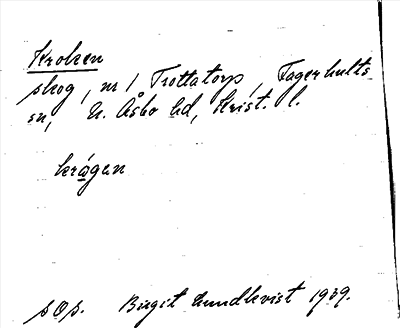 Kroken
skog, nr 1 Trottatorp, Fagerhults-
sn, N. Åsbo hd, Krist. l.
krågen
sOs. Birgit Lundkvist 1939.